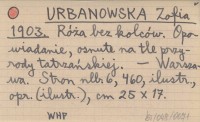 URBANOWSKA Zofia
1903. Róża bez kolców. Opo-
wiadanie, osnute na tle przy-
rody tatrzańskiej. — Warsza-
wa. Stron nlb 6, 460, ilustr.,
opr. (ilustr.), cm 25 x 17.
WHP